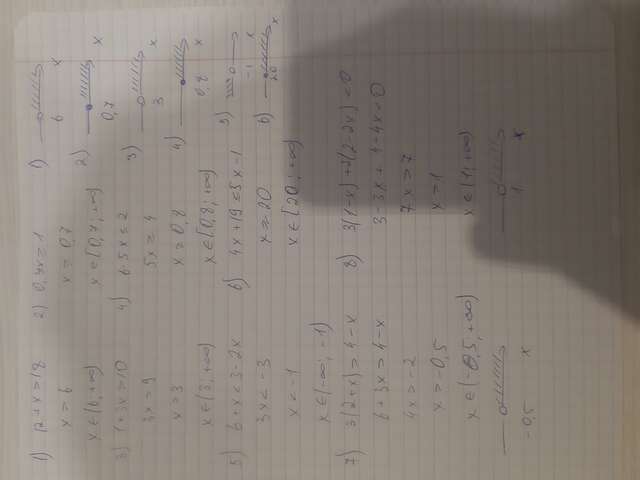 1) 12+x>18
x>6
x∈(6;+∞)
2) 0,7x≥1
x≥0,7
x∈[0,7;+∞)
3) 1+3x>10
3x>9
x>3
x∈(3;+∞)
4) 6-5x≤2
5x≥4
x≥0,8
x∈[0,8;+∞)
5) 6+x<3-2x
3x<-3
x<-1
x∈(-∞;-1)
6) 4x+19≤5x-1
x≥20
x∈[20;+∞)
7) 3(2+x)>4-x
6+3x>4-x
4x>-2
x>-0,5
x∈(-0,5;+∞)
-0,5 x
8)
7x>7
x>1
x∈(1;+∞)
1 x
1) 6 x
2) 0,7 x
3) 3 x
4) 0,8 x
5) -1 x
6) 20 x